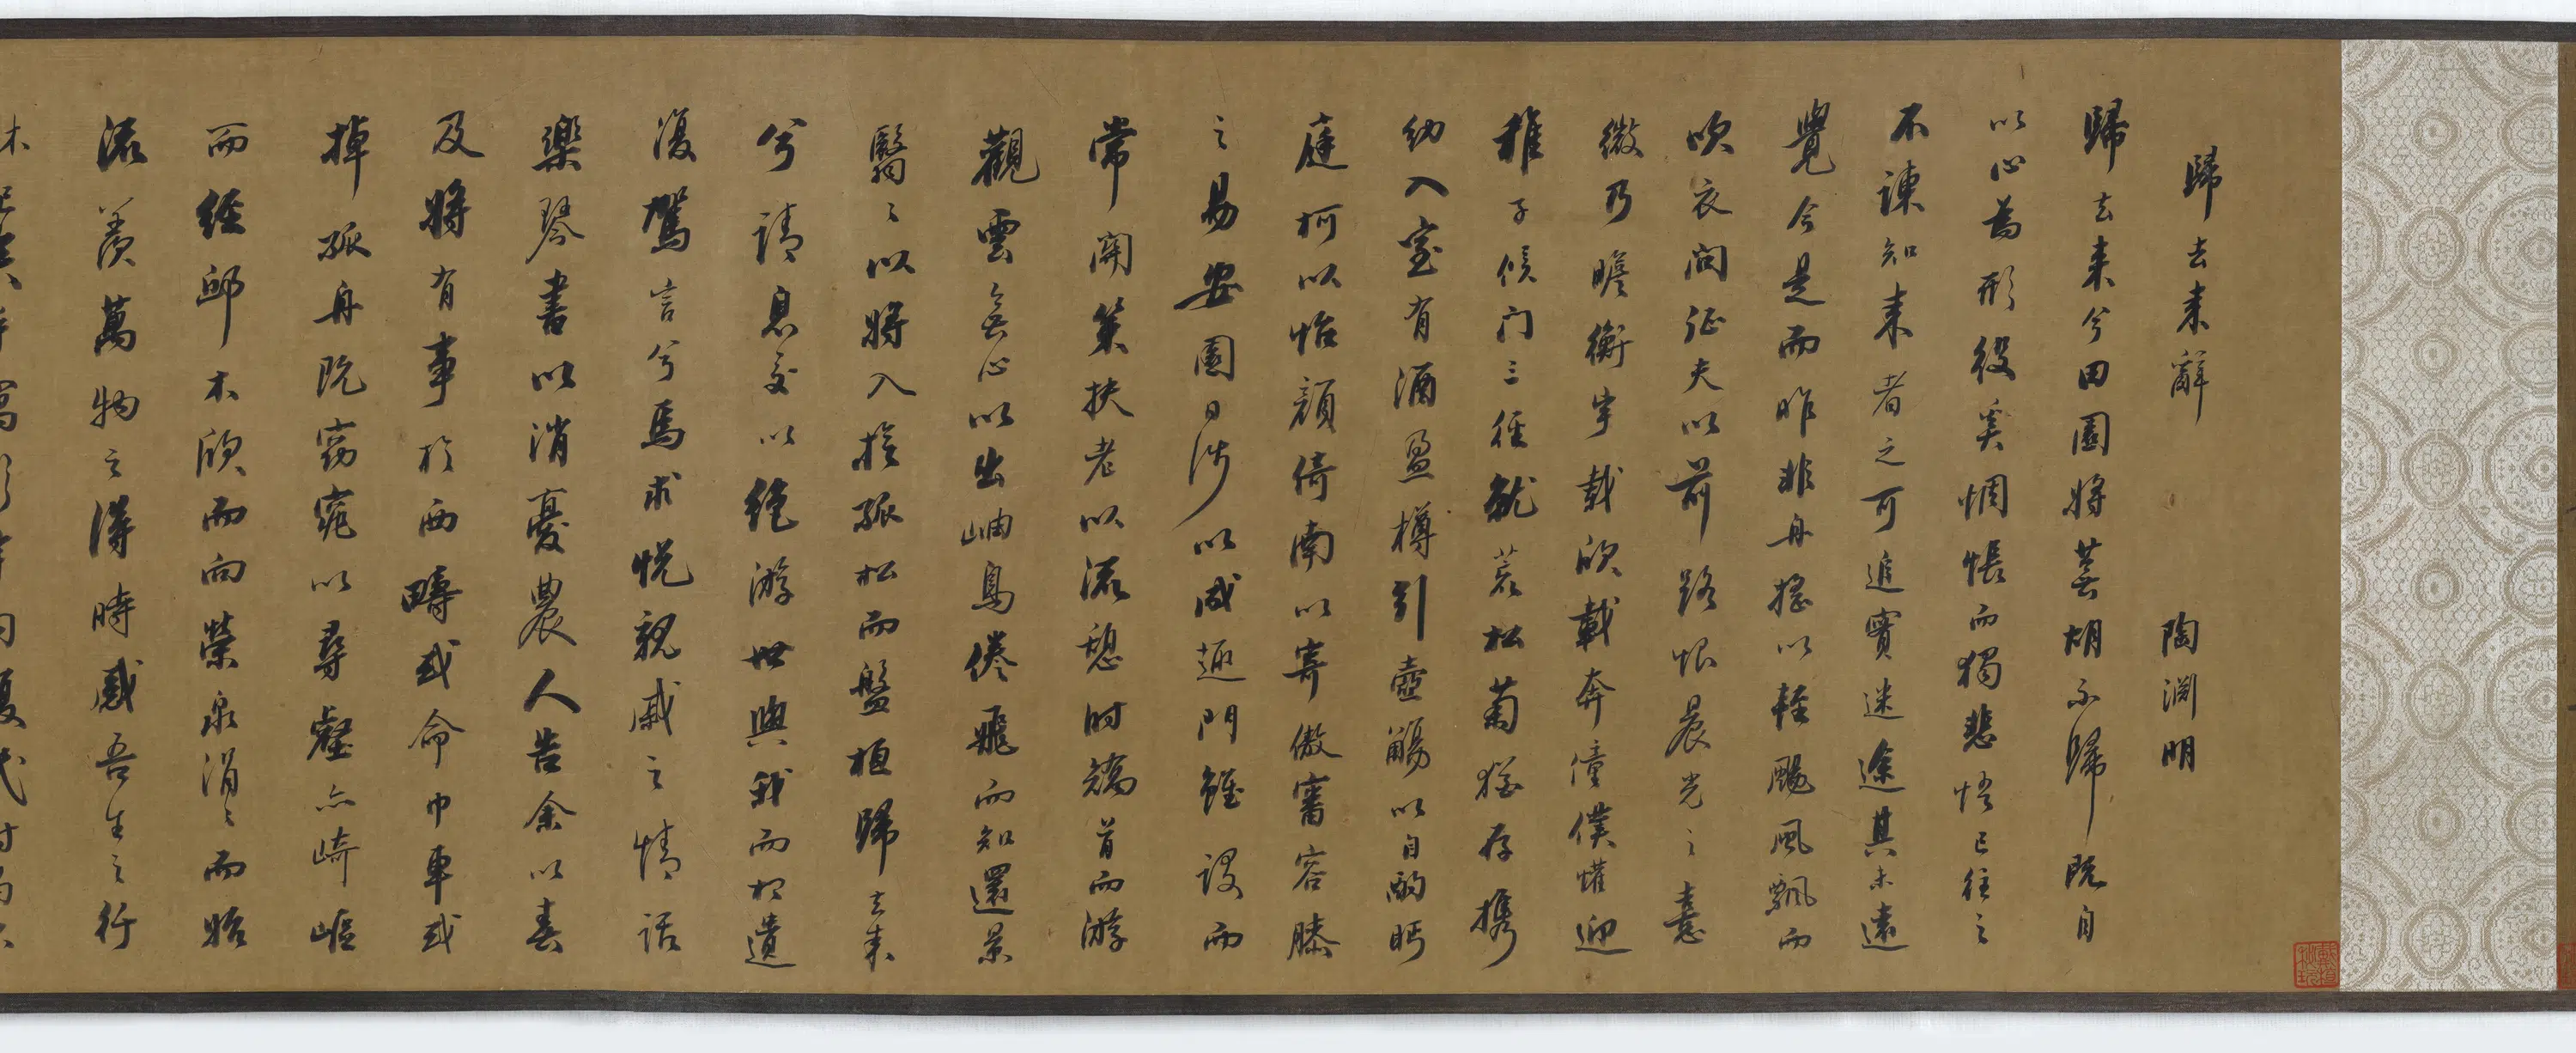 歸去来辭 陶淵明
歸去来兮田園將蕪胡不歸既自
以心為形役奚惆悵而獨悲悟已往之
不諫知来者之可追實迷途其未遠
覺今是而昨非舟搖以輕颺風飄而
吹衣问征夫以前路恨晨光之熹
微乃瞻衡宇載欣載奔僮僕懽迎
稚子候门三徑就荒松菊猶存携
幼入室有酒盈樽引壺觴以自酌眄
庭柯以怡顔倚南以寄傲審容膝
之易安園日涉以成趣門雖設而
常関策扶老以流憩时矯首而游
觀雲無心以出岫鳥倦飛而知還景
翳〻以將入撫孤松而盤桓歸去来
兮請息交以絶游世與我而相遺
復駕言兮焉求悦親戚之情話
樂琴書以消憂農人告余以春
及將有事於西疇或命巾車或
棹孤舟既窈窕以尋壑亦崎嶇
而經邱木欣而向榮泉涓〻而始
流羨萬物之得時感吾生之行